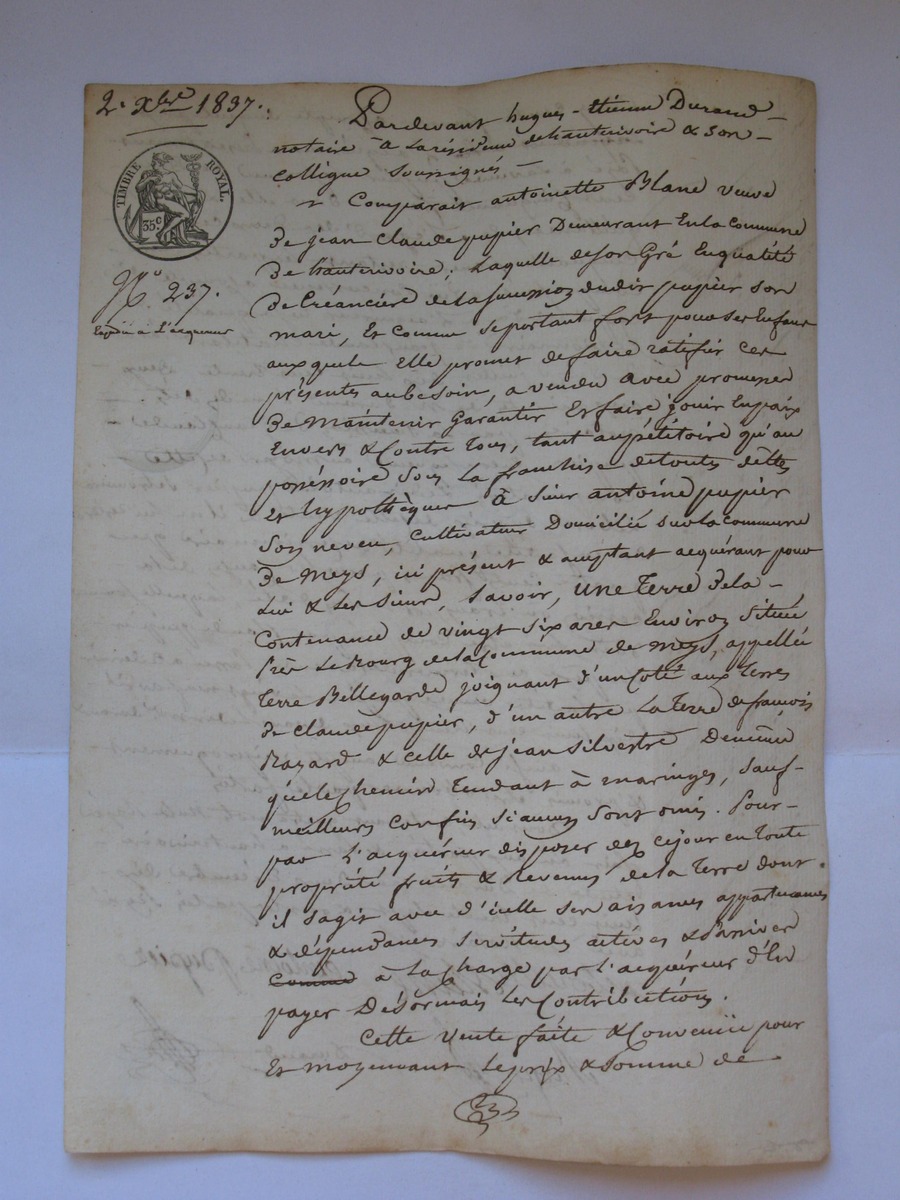 2. Xbre 1837.
TIMBRE ROYAL.
35c
N.o 237.
Expédié à L'acquereur
Pardevant hugues-étienne Durand
notaire à La résidence de hauterivoire & son
collègue soussignés
Comparait antoinette Blanc veuve
De jean Claude pupier Demeurant En la Commune
De hauterivoire; Laquelle de son Gré En qualité
De Créancière de la succession dudit pupier son
mari, Et comme se portant fort pour ses Enfans
auxquels Elle promet de faire ratifier ces
présentes au besoin, a vendu avec promesse
De maintenir Garantir Et faire jouir En paix
Envers & Contre Tous, tant au pétitoire qu'au
possessoire sous La franchise de toutes dettes
Et hypothèques à Sieur antoine pupier
Son neveu, cultivateur Domicilié sur la commune
De Meys, ici présent & acceptant acquérant pour
Lui & Les Siens, Savoir, une Terre De la
Contenance de vingt six ares Environ Située
Près Le Bourg de la Commune de Meys, appellée
Terre Bellegarde joignant d'un Coté aux Terres
De claude pupier, d'un autre La Terre de françois
& celle de jean Silvestre De même
que le Chemin Tendant à maringes, sauf
meilleurs confins si aucuns sont omis. Pour
par L'acquéreur disposer dez ce jour en toute
propriété fruits & revenus de la Terre dont
il s'agit avec d'icelle ses aisances appartenances
& dépendances servitudes actives &
Comme à La Charge par L'acquéreur d'En
payer Désormais Les Contributions.
Cette Vente faite & Convenüe pour
Et moyennant Le prix & Somme de